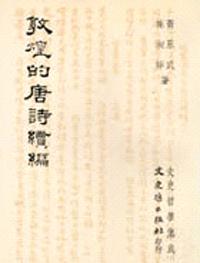 黃永武
施淑婷 著
文史哲學集成
文史哲出版社印行
敦煌的唐詩續編